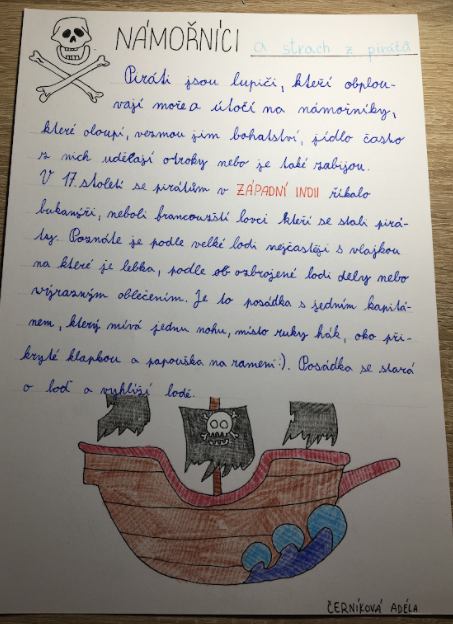 NÁMOŘNÍCI a strach z pirátů
Piráti jsou lupiči, kteří obplou-
vají moře a útočí na námořníky,
které oloupí, vezmou jim bohatství, jídlo často
z nich udělají otroky nebo je také zabijou.
V 17. století se pirátům v ZÁPADNÍ INDII říkalo
bukanýři, neboli francouzští lovci kteří se stali pirá-
ty. Poznáte je podle velké lodi nejčastěji s vlajkou
na které je lebka, podle ozbrojené lodi děly nebo
výrazným oblečením. Je to posádka s jedním kapitá-
nem, který mívá jednu nohu, místo ruky hák, oko při-
kryté klapkou a papouška na rameni :). Posádka se stará
o loď a vyhlíží lodě.
ČERNÍKOVÁ ADÉLA